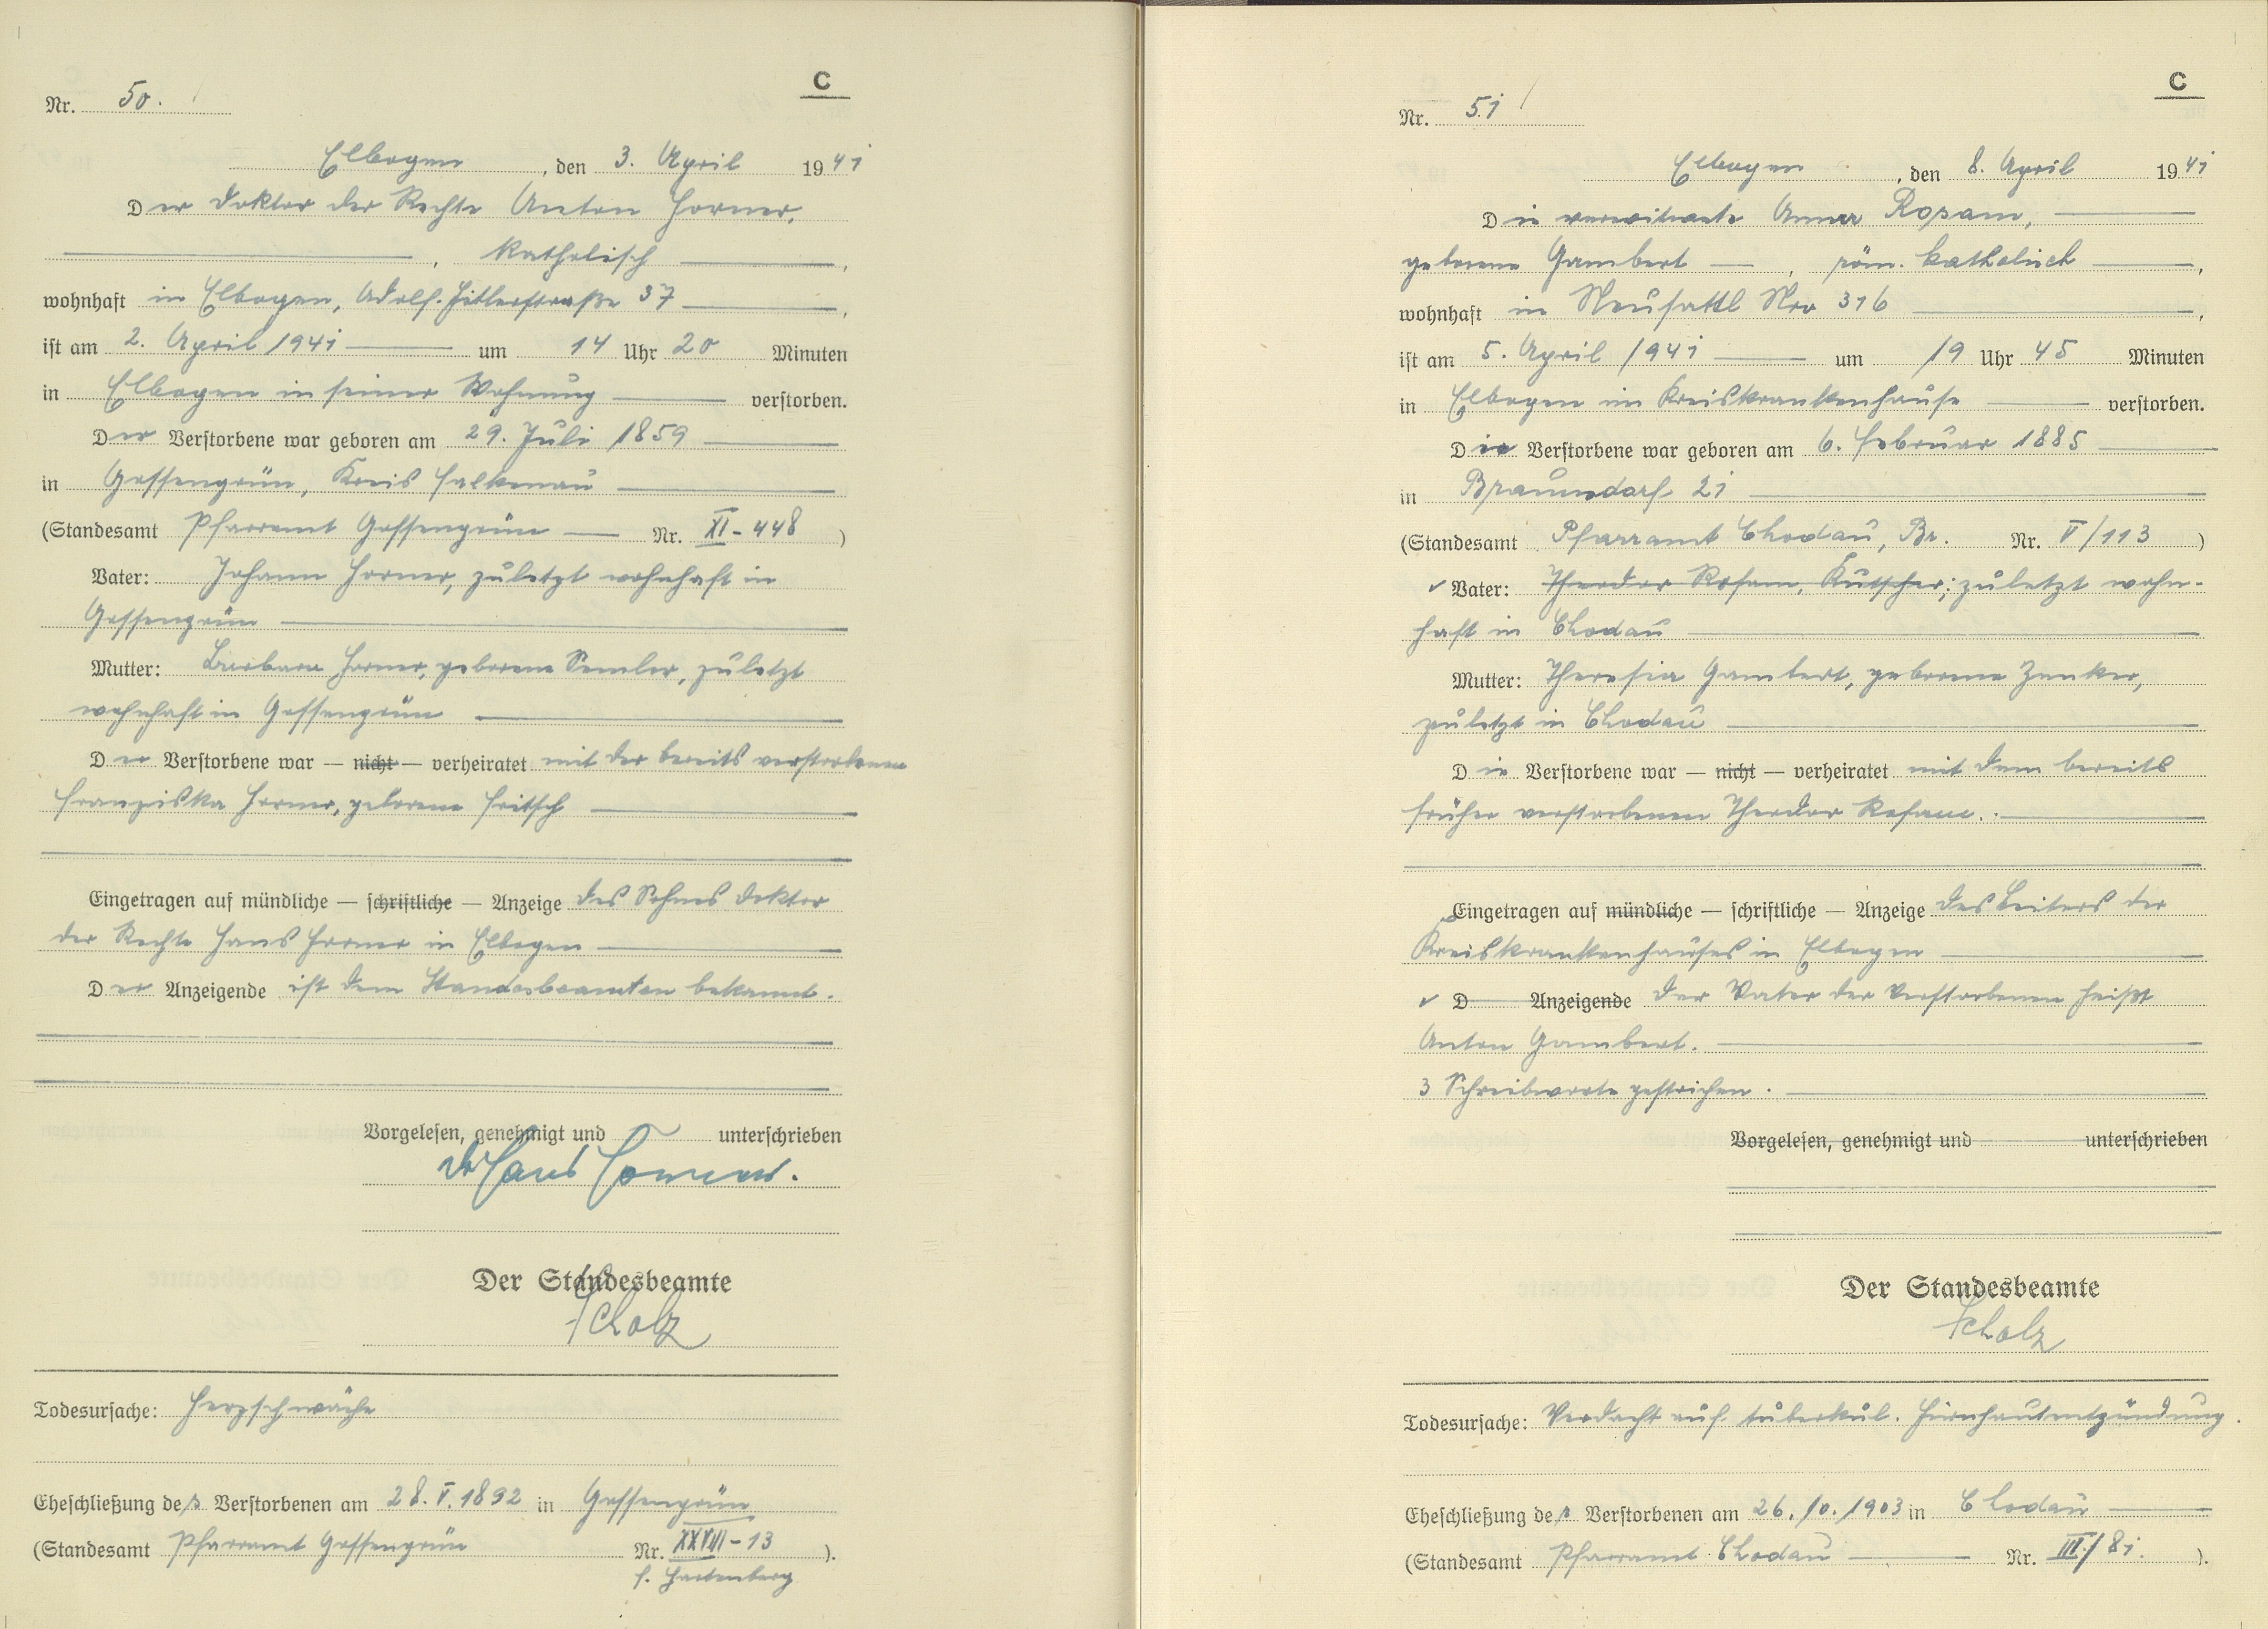 C
Nr. 50.
Elbogen, den 3. April 1941
Der Doktor der Rechte Anton Horner,
, katholisch,
wohnhaft in Elbogen, Adolf-Hitlerstraße 37,
ist am 2. April 1941 um 14 Uhr 20 Minuten
in Elbogen in seiner Wohnung verstorben.
Der Verstorbene war geboren am 29. Juli 1859
in Gossengrün, Kreis Falkenau
(Standesamt Pfarramt Gossengrün Nr. XI-448)
Vater: Johann Horner, zuletzt wohnhaft in
Gossengrün
Mutter: Barbara Horner, geborene Semler, zuletzt
wohnhaft in Gossengrün
Der Verstorbene war — nicht — verheiratet mit der bereits verstorbenen
Franziska Horner, geborene Fritsch
Eingetragen auf mündliche — schriftliche — Anzeige des Sohnes Doktor
der Rechte Hans Horner in Elbogen
Der Anzeigende ist dem Standesbeamten bekannt.
Vorgelesen, genehmigt und unterschrieben
Dr Hans Horner.
Der Standesbeamte
Scholz
Todesursache: Herzschwäche
Eheschließung des Verstorbenen am 28. V. 1892 in Gossengrün
(Standesamt Pfarramt Gossengrün Nr. XXVIII-13).
f. Hartenberg
C
Nr. 51
Elbogen, den 8. April 1941
Die verwitwete Anna Rosam,
geborene Gambert, röm. katholisch,
wohnhaft in Neusattl Nro 316,
ist am 5. April 1941 um 19 Uhr 45 Minuten
in Elbogen im Kreiskrankenhause verstorben.
Die Verstorbene war geboren am 6. Februar 1885
in Braunsdorf 21
(Standesamt Pfarramt Chodau, Br. Nr. V/113)
✓ Vater: Theodor Rosam, Kutscher; zuletzt wohn-
haft in Chodau
Mutter: Theresia Gambert, geborene Zenker,
zuletzt in Chodau
Die Verstorbene war — nicht — verheiratet mit dem bereits
früher verstorbenen Theodor Rosam.
Eingetragen auf mündliche — schriftliche — Anzeige des Leiters der
Kreiskrankenhauses in Elbogen
✓ D Anzeigende Der Vater der Verstorbenen heißt
Anton Gambert.
3 Schreibworte gestrichen.
Vorgelesen, genehmigt und unterschrieben
Der Standesbeamte
Scholz
Todesursache: Verdacht auf tuberkul. Hirnhautentzündung.
Eheschließung der Verstorbenen am 26. 10. 1903 in Chodau
(Standesamt Pfarramt Chodau Nr. III/81.).